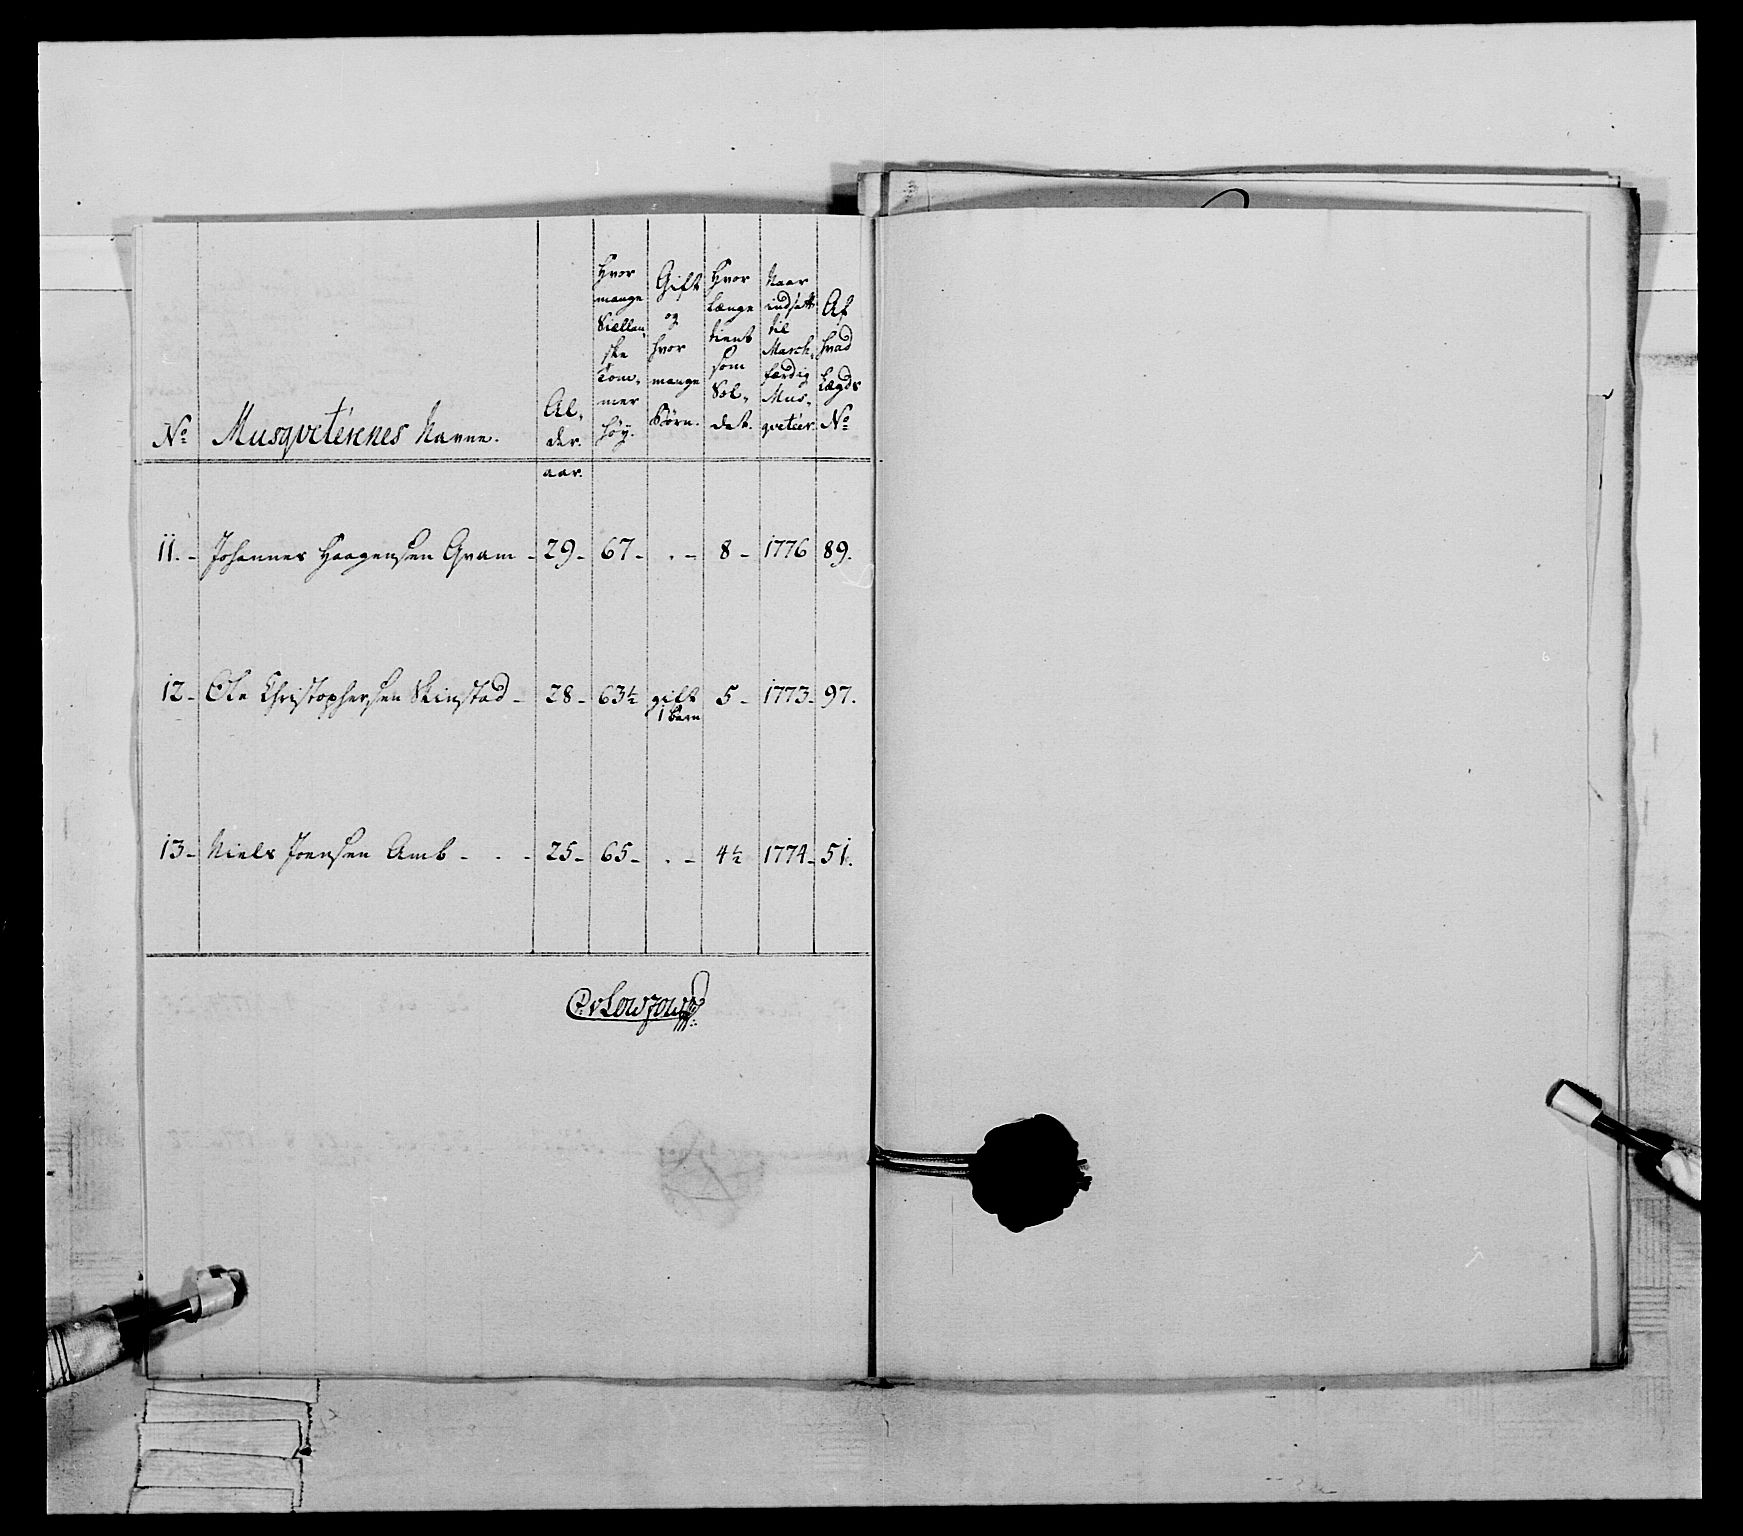 No
Musqveterernes Navne.
Al,
der.
aar.
Hvor
mange
Siællan,
ske
Tom,
mer
høy.
Gift
og
hvor
mange
Børn.
Hvor
længe
tient
som
Sol,
dat.
Naar
indsatt
til
March,
færdig
Mus,
qveteer.
Af
hvad
Lægds
No
11. - Johannes Haagensen Gram - 29 - 67 - . - 8 - 1776 89.
12 - Ole Christophersen Skinstad - 28 - 63½ gift 5 - 1773 - 97.
1 Barn
13 - Niels Joensen Amb - . - 25 - 65 - . - 4½ 1774 - 51.
C. v Lowzow